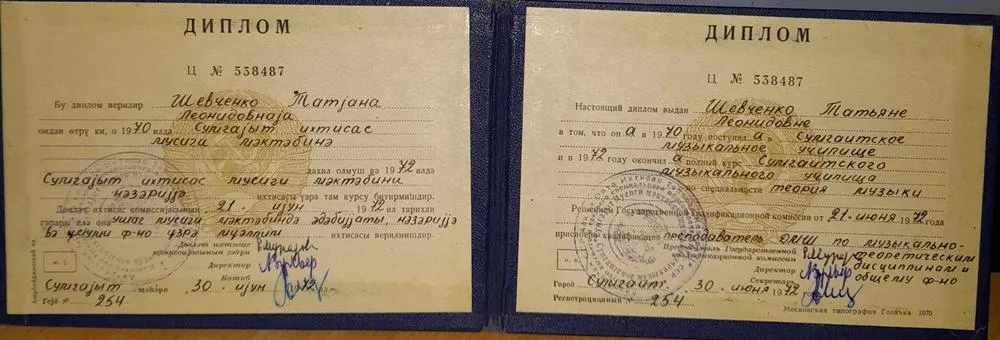 ДИПЛОМ
Ц № 538487
Бу диплом верилир Шевченко Татјана
Леонидовнаја
ондан өтрү ки, о 1970 илдә Сумгајыт ихтисас
мусиги мәктәбинә
дахил олмуш вә 1972 илдә
Сумгајыт ихтисас мусиги мәктәбини
нәзәријјә ихтисасы үзрә там курсу битирмишдир.
Дөвләт ихтисас комиссијасынын 21. ијун 1972-ил тарихли
гәрары илә она ушаг мусиги мәктәбиндә әдәбијјаты, нәзәријјә
вә үмуми ф-но үзрә муәллим ихтисасы верилмишдир.
Дөвләт ихтисас
комиссијасынын сәдри
Директор
Катиб
Сумгајыт шәһәри 30 ијун 1972
Гејд № 254
ДИПЛОМ
Ц № 538487
Настоящий диплом выдан Шевченко Татьяне
Леонидовне
в том, что он а в 1970 году поступил а в Сумгаитское
музыкальное училище
и в 1972 году окончил а полный курс Сумгаитского
музыкального училища
по специальности теория музыки
Решением Государственной квалификационной комиссии от 21 июня 1972 года
присвоена квалификация преподаватель ДМШ по музыкально-
теоретическим
дисциплинам и
общему ф-но
Председатель Государственной
квалификационной комиссии
Директор
Секретарь
Город Сумгаит 30 июня 1972 года
Регистрационный № 254
Московская типография Гознака 1970.